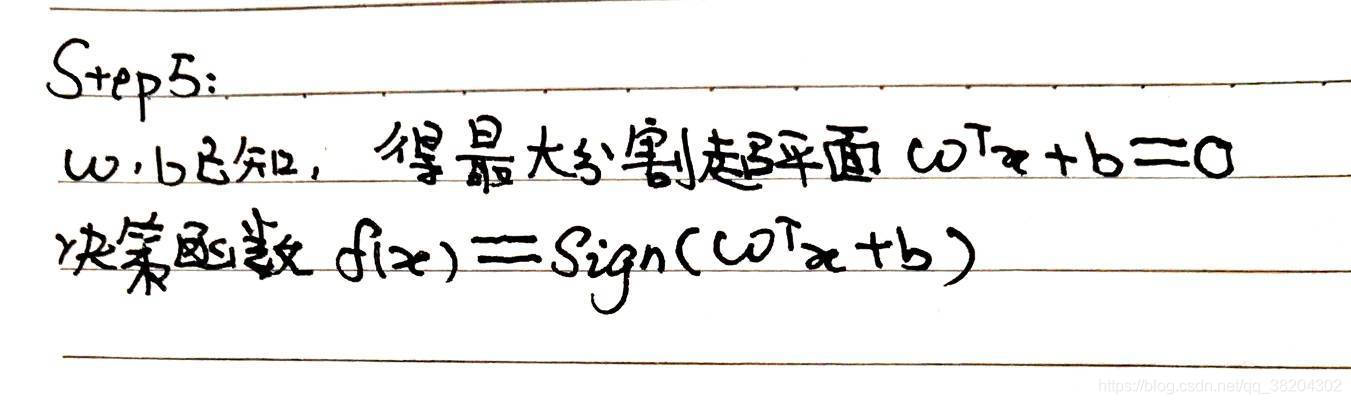 Step5:
ω,b已知, 得最大分割超平面 ωᵀx+b=0
决策函数 f(x)=Sign(ωᵀx+b)
https://blog.csdn.net/qq_38204302